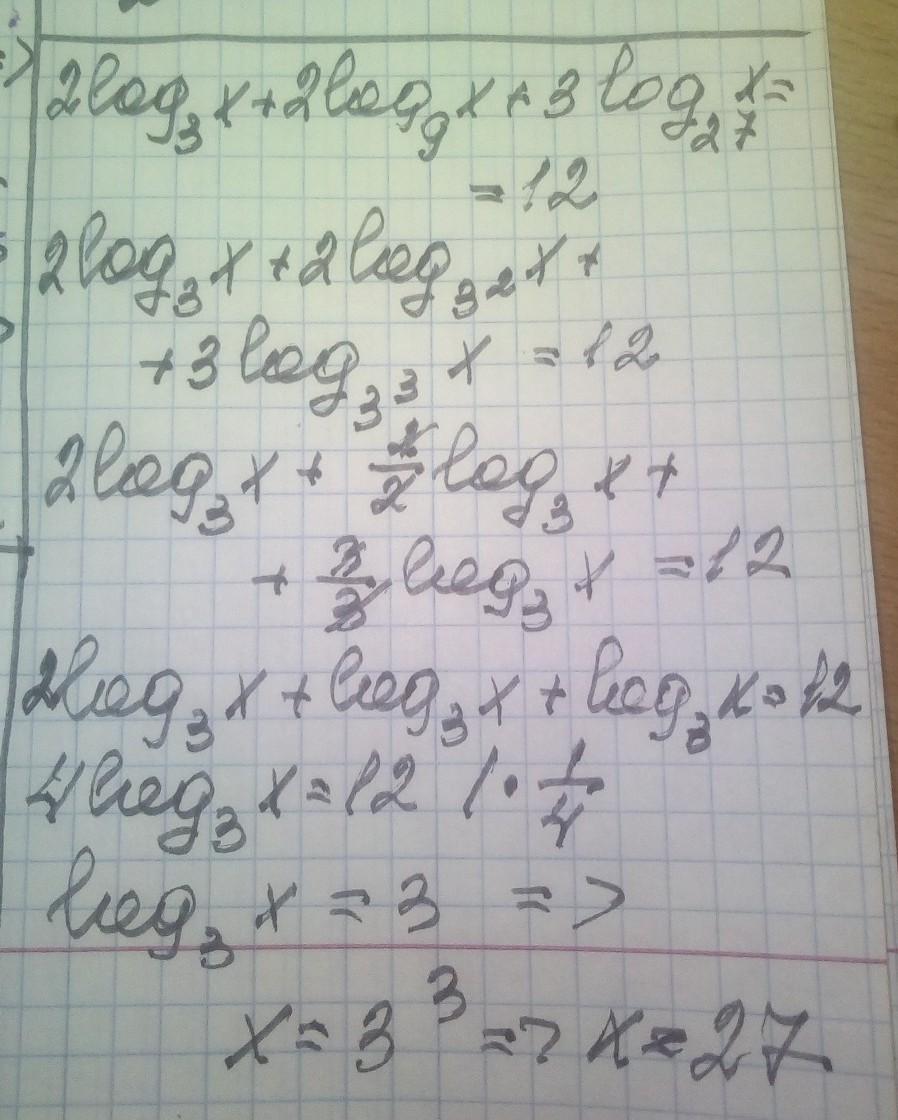 2log₃x+2log₉x+3log₂₇x=
=12
2log₃x+2log₃²x+
+3log₃³x=12
2log₃x+2/2log₃x+
+3/3log₃x=12
2log₃x+log₃x+log₃x=12
4log₃x=12 |·1/4
log₃x=3 =>
x=3³=>x=27